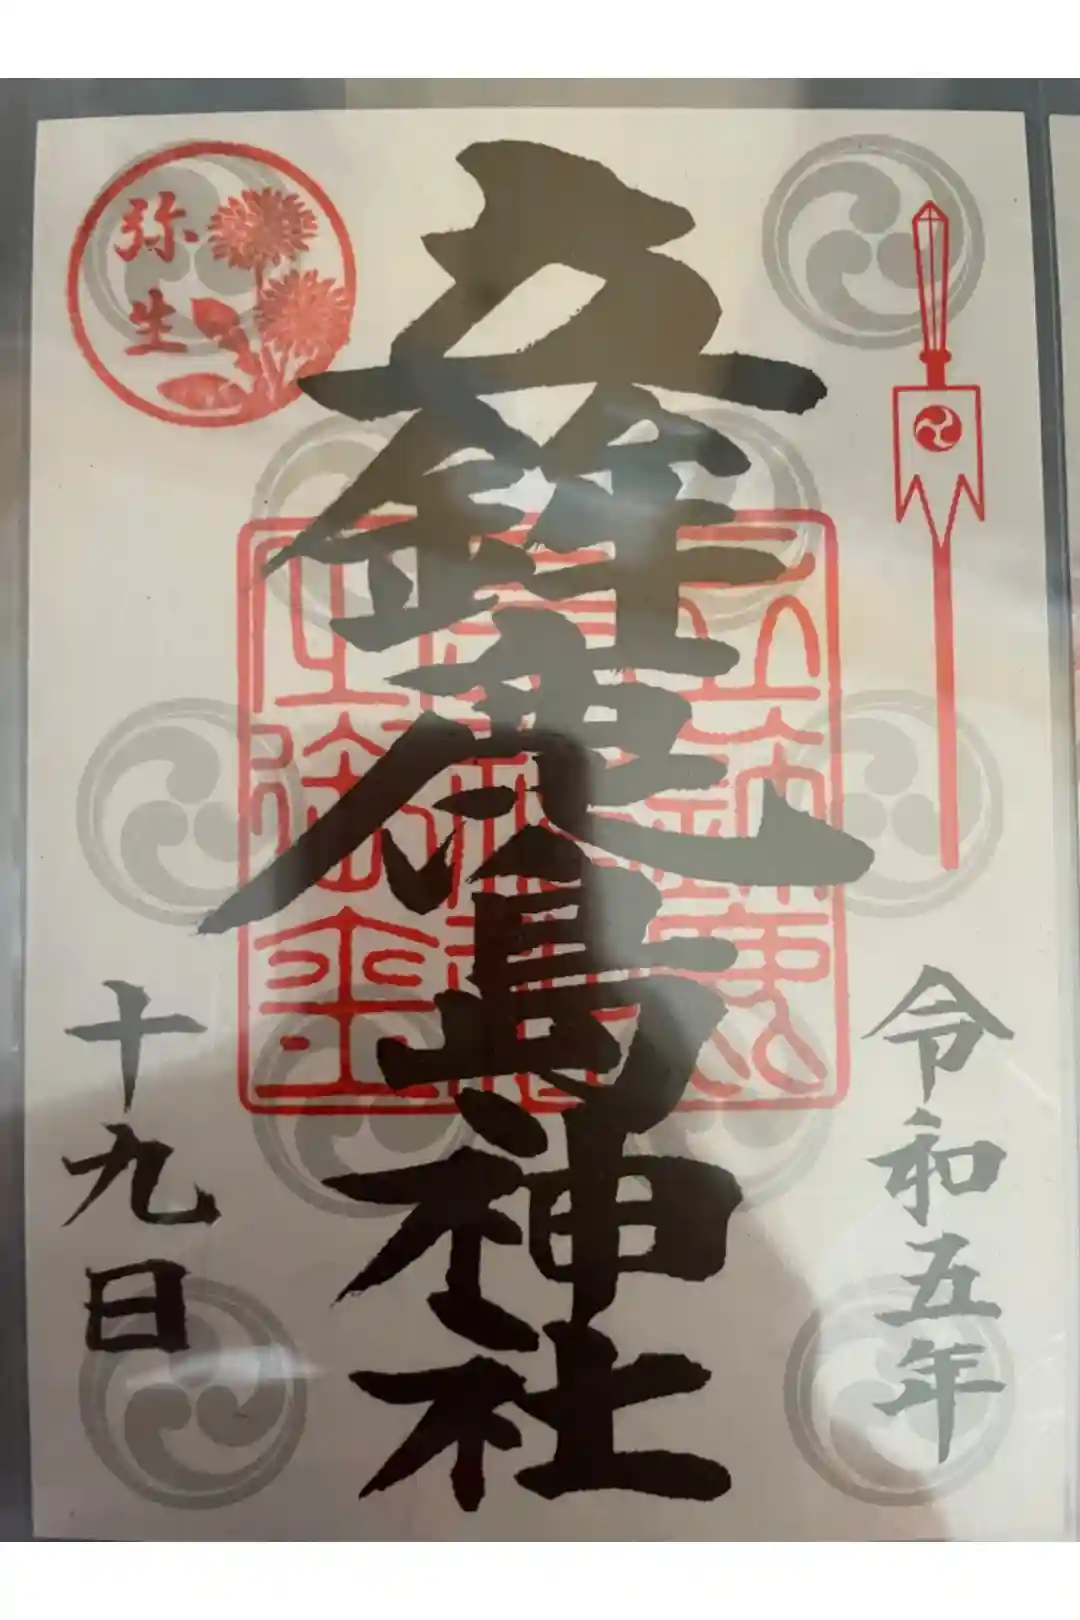 令和五年
立鉾鹿島神社
弥生
十九日